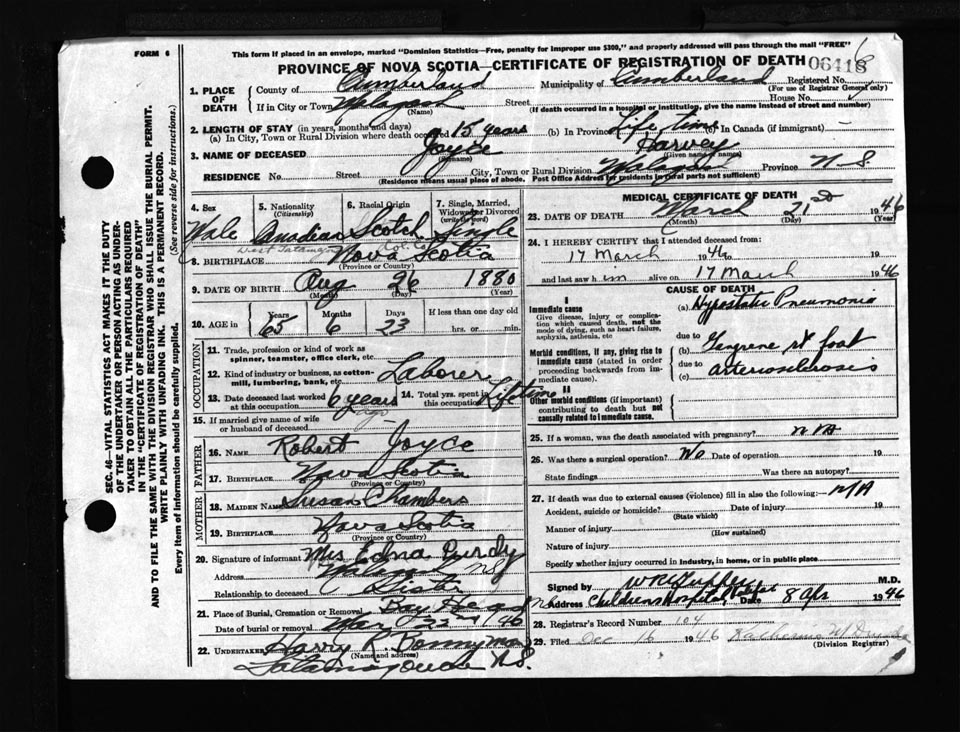 FORM 6
This form if placed in an envelope, marked "Dominion Statistics—Free, penalty for improper use $300," and properly addressed will pass through the mail "FREE"
PROVINCE OF NOVA SCOTIA—CERTIFICATE OF REGISTRATION OF DEATH 06418
1. PLACE OF DEATH County of Cumberland Municipality of Cumberland Registered No.
(For use of Registrar General only)
If in City or Town Malagash Street House No.
(Name) (If death occurred in a hospital or institution, give the name instead of street and number)
2. LENGTH OF STAY (in years, months and days)
(a) In City, Town or Rural Division where death occurred 15 years (b) In Province Life time (c) In Canada (if immigrant) —
3. NAME OF DECEASED Joyce Harvey
(Surname) (Given name or names)
RESIDENCE No. Street City, Town or Rural Division Malagash Province N-S
(Residence means usual place of abode. Post Office Address of residents in rural parts not sufficient)
4. Sex Male
5. Nationality (Citizenship) Canadian
6. Racial Origin Scotch
7. Single, Married, Widowed or Divorced (write the word) Single
West Tatamagouche Col. Co.
8. BIRTHPLACE Nova Scotia
(Province or Country)
9. DATE OF BIRTH Aug 26 1880
(Month) (Day) (Year)
10. AGE in Years 65 Months 6 Days 23 If less than one day old hrs. or min.
OCCUPATION
11. Trade, profession or kind of work as spinner, teamster, office clerk, etc.
12. Kind of industry or business, as cotton-mill, lumbering, bank, etc. Laborer
13. Date deceased last worked at this occupation 6 years ago
14. Total yrs. spent in this occupation Lifetime
15. If married give name of wife or husband of deceased
FATHER
16. NAME Robert Joyce
17. BIRTHPLACE Nova Scotia
(Province or Country)
MOTHER
18. MAIDEN NAME Susan Chambers
19. BIRTHPLACE Nova Scotia
(Province or Country)
20. Signature of informant Mrs Edna Purdy
Address Malagash N.S.
Relationship to deceased Sister
21. Place of Burial, Cremation or Removal Bay Head
Date of burial or removal Mar 22nd 1946
22. UNDERTAKER Harry R. Bonnyman
(Name and address)
Tatamagouche N.S.
MEDICAL CERTIFICATE OF DEATH
23. DATE OF DEATH March 21st 1946
(Month) (Day) (Year)
24. I HEREBY CERTIFY that I attended deceased from:
17 March 1946 to
and last saw him alive on 17 March 1946
CAUSE OF DEATH
I
Immediate cause
Give disease, injury or complication which caused death, not the mode of dying, such as heart failure, asphyxia, asthenia, etc.
(a) Hypostatic Pneumonia
due to
Morbid conditions, if any, giving rise to immediate cause (stated in order proceeding backwards from immediate cause).
(b) Gangrene rt foot
due to
(c) arteriosclerosis
II
Other morbid conditions (if important) contributing to death but not causally related to immediate cause.
25. If a woman, was the death associated with pregnancy? N A
26. Was there a surgical operation? No Date of operation 19
State findings Was there an autopsy?
27. If death was due to external causes (violence) fill in also the following:— N/A
Accident, suicide or homicide? Date of injury 19
(State which)
Manner of injury
(How sustained)
Nature of injury
Specify whether injury occurred in industry, in home, or in public place
Signed by M.D.
Address Childrens Hospital, Halifax Date 8 Apr 1946
28. Registrar's Record Number 104
29. Filed Dec 16 1946 Katherine M
(Division Registrar)
SEC. 46—VITAL STATISTICS ACT MAKES IT THE DUTY
OF THE UNDERTAKER OR PERSON ACTING AS UNDERTAKER TO OBTAIN ALL THE PARTICULARS REQUIRED
IN THE "CERTIFICATE OF REGISTRATION OF DEATH"
AND TO FILE THE SAME WITH THE DIVISION REGISTRAR WHO SHALL ISSUE THE BURIAL PERMIT.
WRITE PLAINLY WITH UNFADING INK. THIS IS A PERMANENT RECORD.
Every item of information should be carefully supplied. (See reverse side for instructions.)